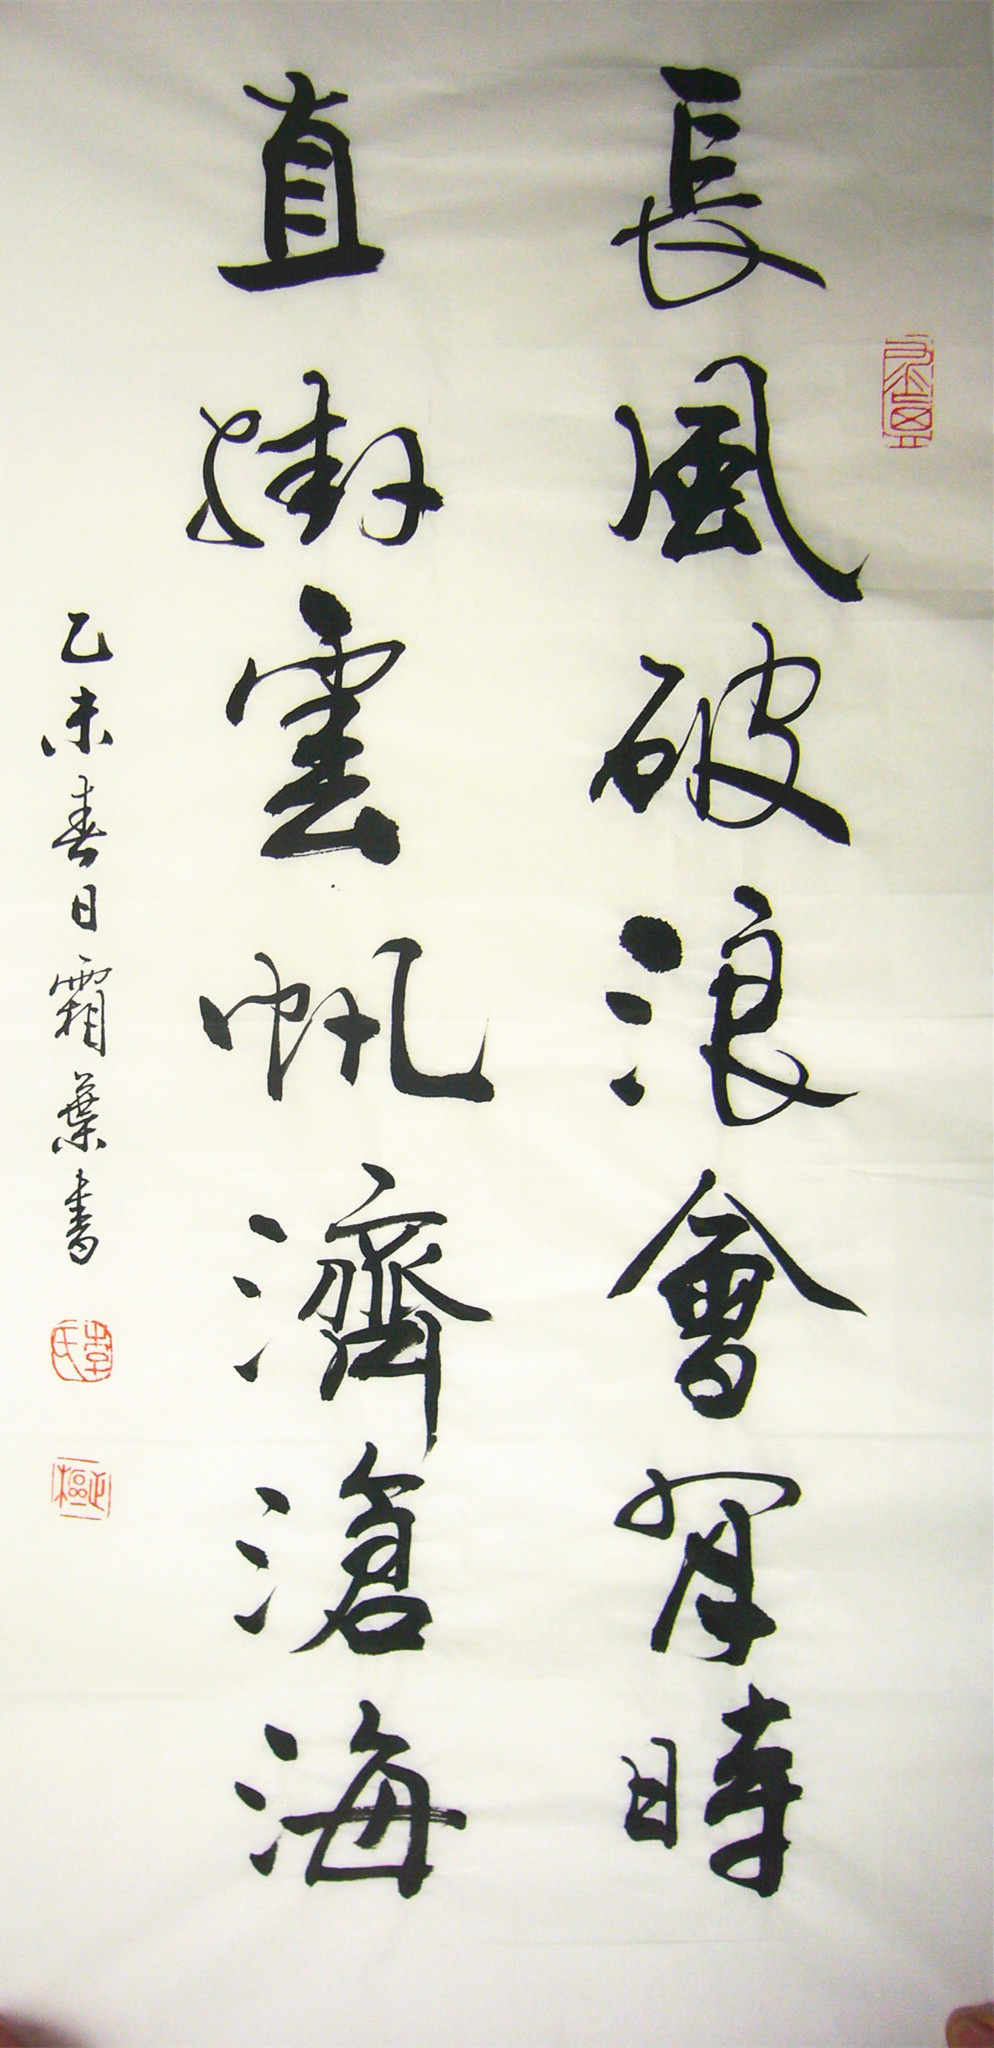 長風破浪會有時
直掛雲帆濟滄海
乙未春日霜葉書
李氏